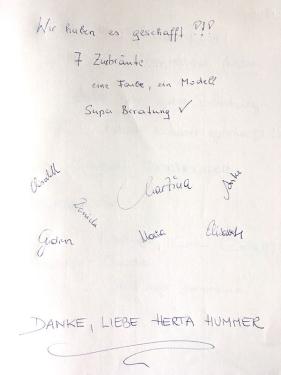 Wir haben es geschafft !!!
7 Zubräute
eine Farbe, ein Modell
Super Beratung ✓
Martina
Daniela
Gudrun Maria Elisabeth
DANKE, LIEBE HERTA HUMMER